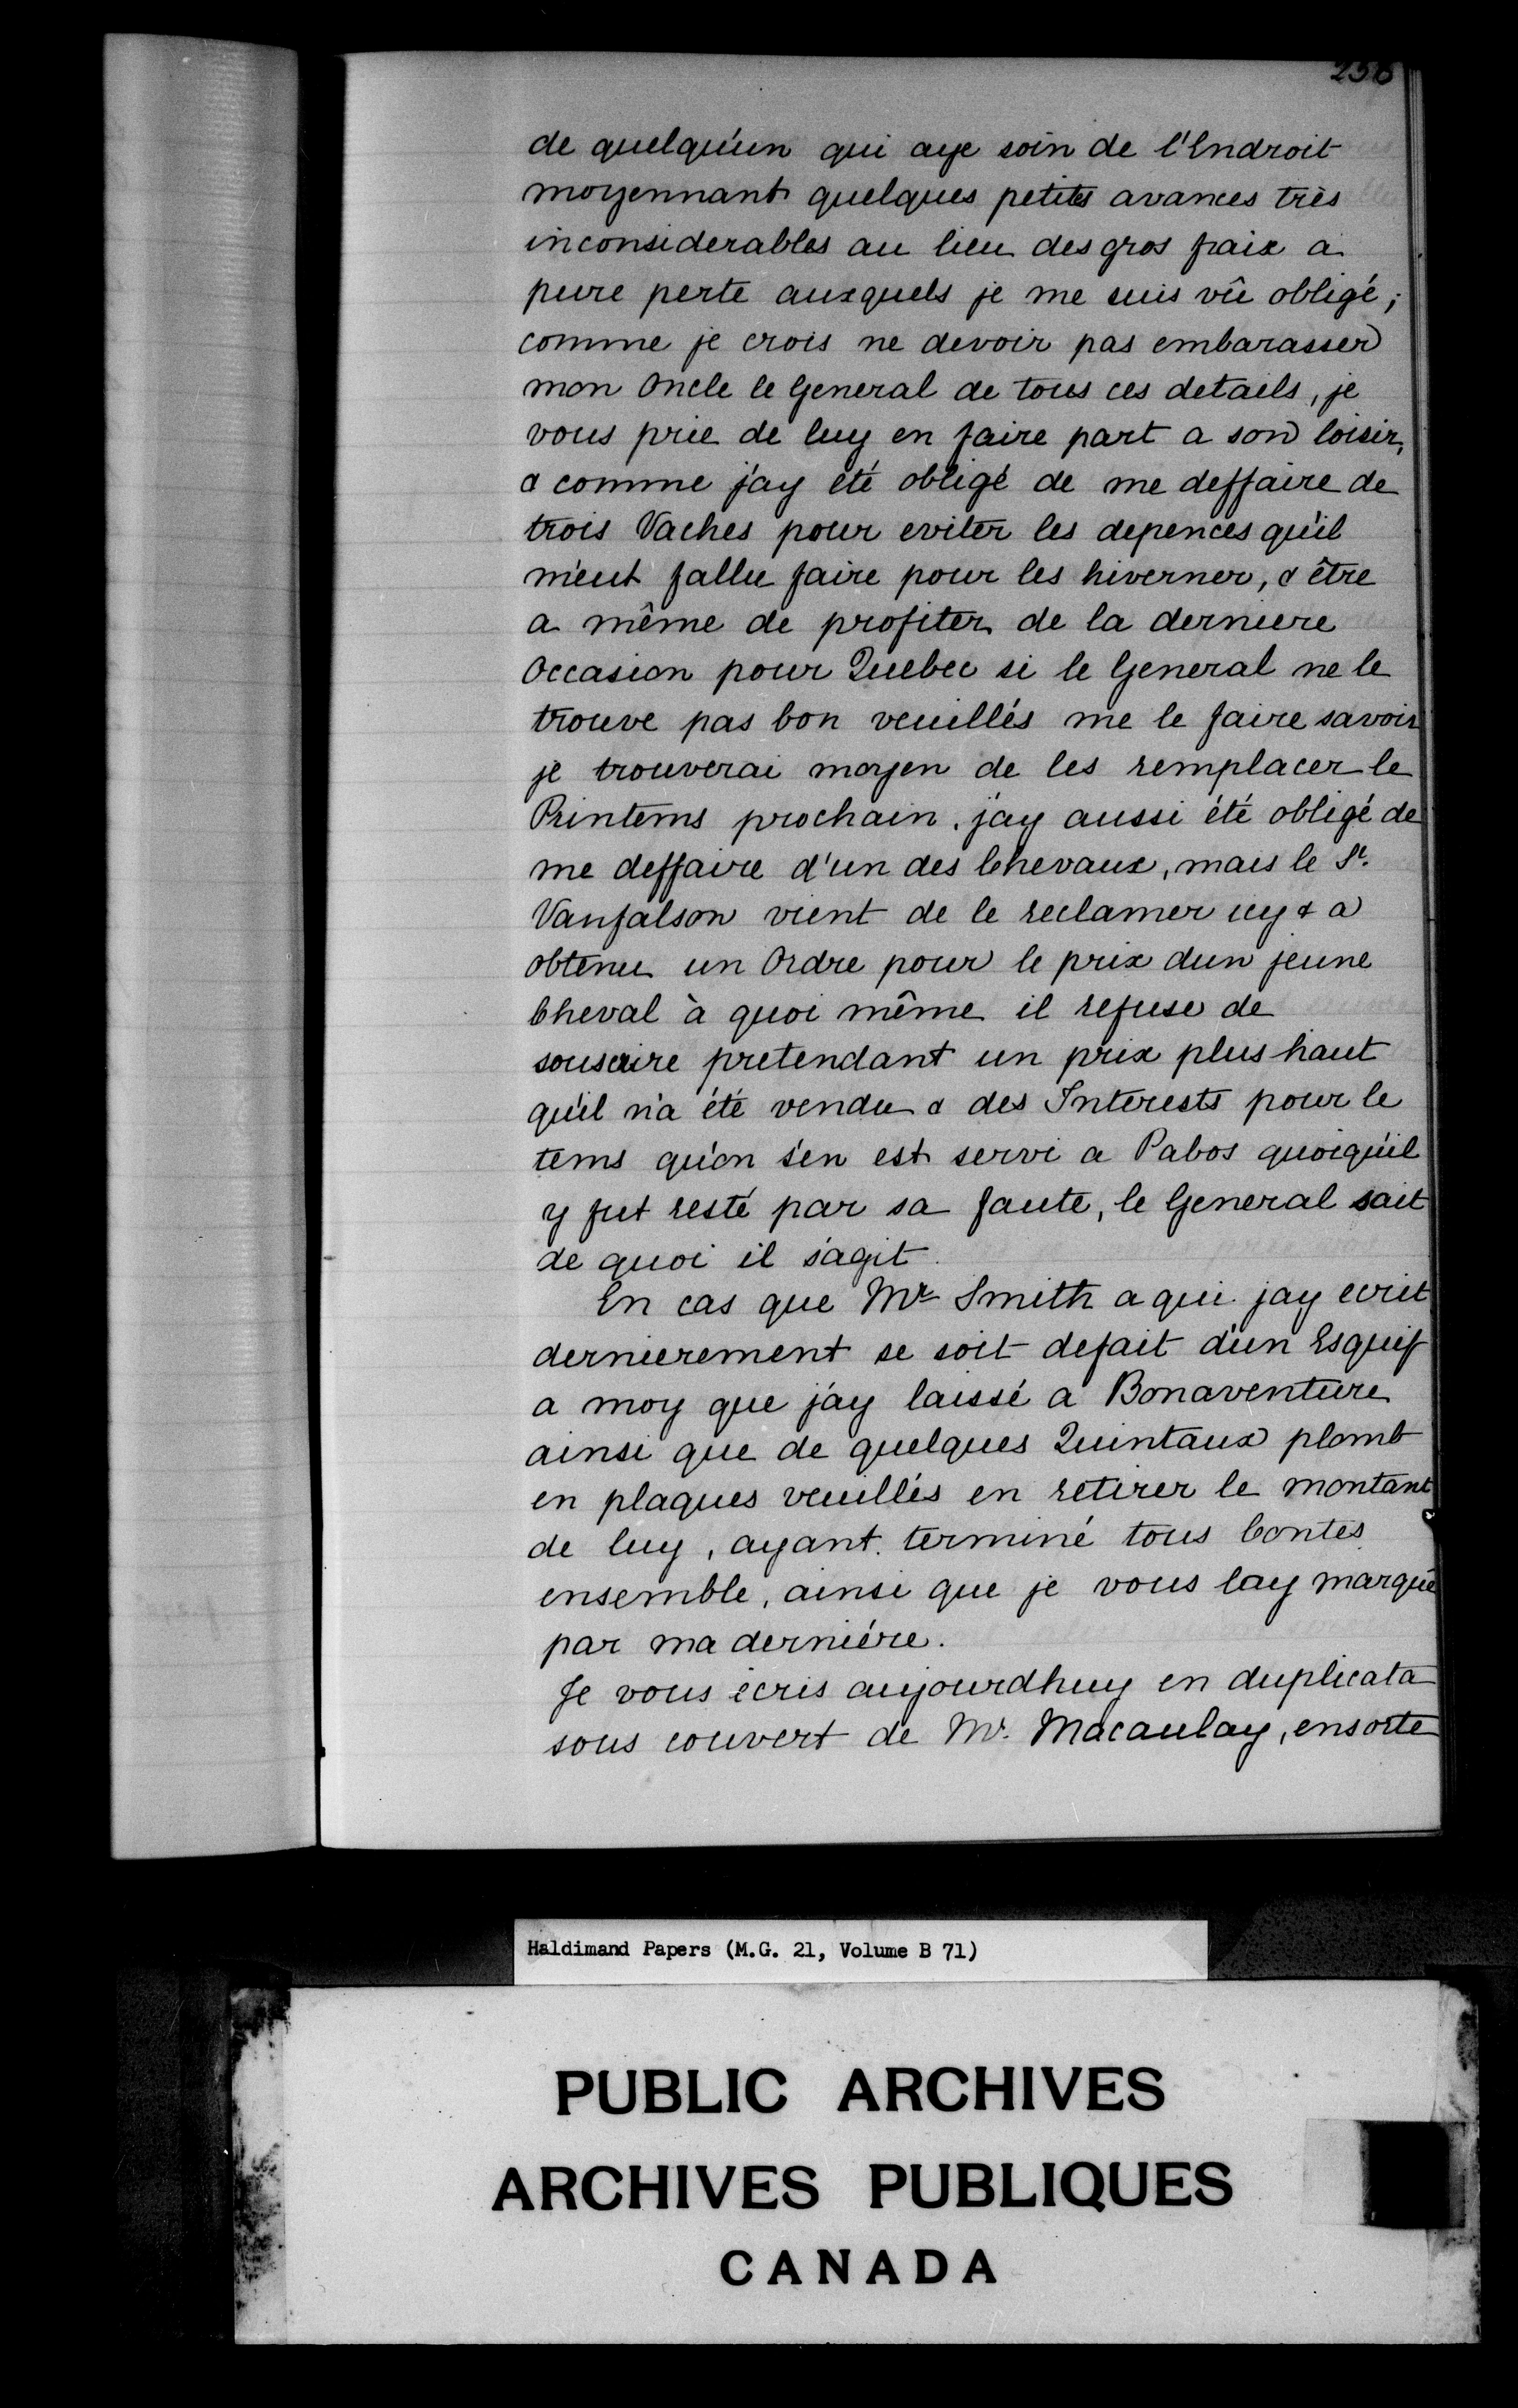 de quelqu'un qui aye soin de l'Endroit
moyennant quelques petites avances très
inconsiderables au lieu des gros fraix a
pure perte auxquels je me suis vû obligé;
comme je crois ne devoir pas embarasser
mon Oncle le General de tous ces details, je
vous prie de luy en faire part a son loisir,
& comme j'ay été obligé de me deffaire de
trois Vaches pour eviter les depences qu'il
m'eut fallu faire pour les hiverner, & être
a même de profiter de la derniere
Occasion pour Quebec si le General ne le
trouve pas bon veuillés me le faire savoir
je trouverai moyen de les remplacer le
Printems prochain. j'ay aussi été obligé de
me deffaire d'un des Chevaux, mais le Sr.
Vanfalson vient de le reclamer icy & a
obtenu un Ordre pour le prix dun jeune
Cheval à quoi même il refuse de
souscrire pretendant un prix plus haut
qu'il n'a été vendu & des Interests pour le
tems qu'on s'en est servi a Pabos quoiqu'il
y fut resté par sa faute, le General sait
de quoi il s'agit.
En cas que Mr Smith a qui jay ecrit
dernierement se soit defait d'un Esquif
a moy que j'ay laissé a Bonaventure
ainsi que de quelques Quintaux plomb
en plaques veuillés en retirer le montant
de luy, ayant terminé tous Contes
ensemble, ainsi que je vous lay marqué
par ma derniére.
Je vous écris aujourdhuy en duplicata
sous couvert de Mr. Macaulay, ensorte
Haldimand Papers (M.G. 21, Volume B 71)
PUBLIC ARCHIVES
ARCHIVES PUBLIQUES
CANADA